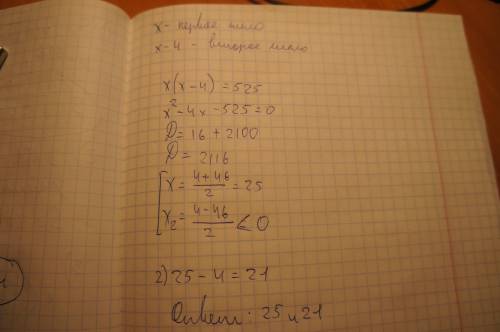 x - первое число
x-4 - второе число
x(x-4)=525
x²-4x-525=0
D=16+2100
D=2116
[x=(4+46)/2=25
x₂=(4-46)/2<0
2)25-4=21
Ответ: 25 и 21